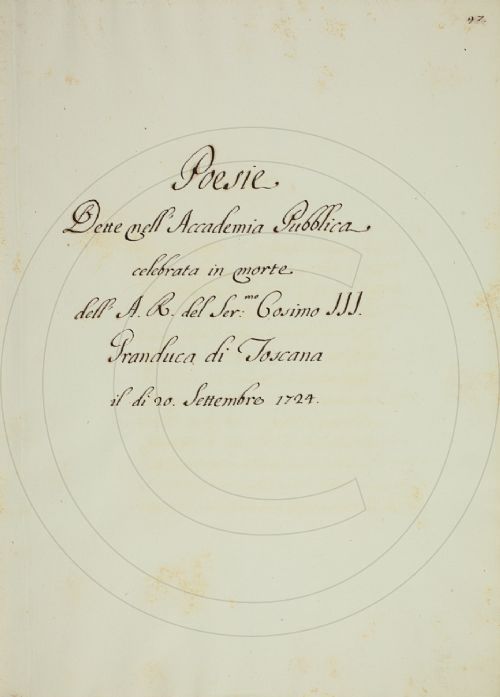 97.
Poesie
Dette nell' Accademia Pubblica
celebrata in morte
dell' A. R. del Ser:mo Cosimo III.
Granduca di Toscana
il di 20. Settembre 1724.